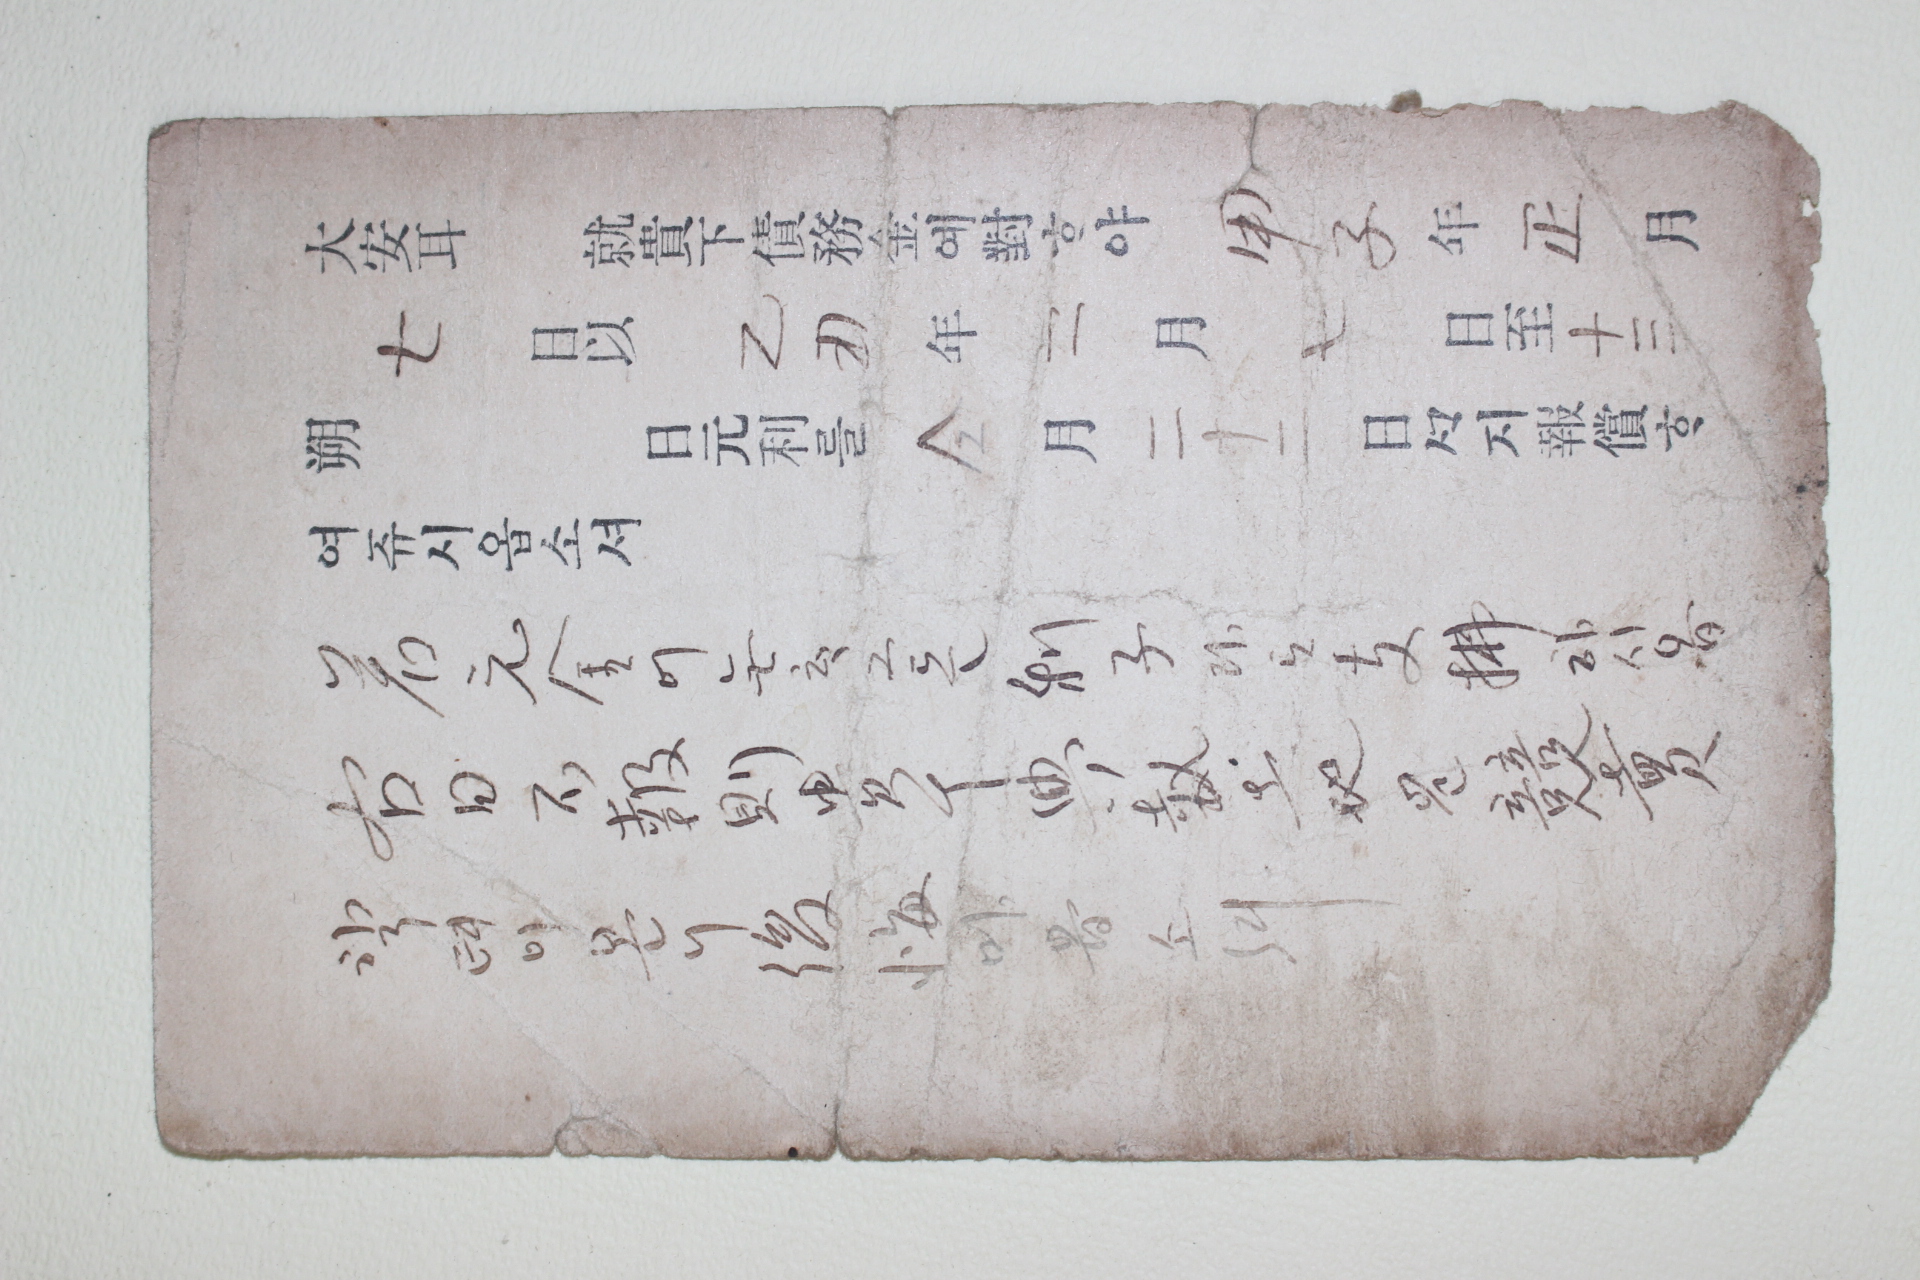 大安耳 就貴下債務金예對ᄒᆞ야 甲子年正月
七日以 乙丑年二月 七日至十三
朔 日元利를 仝月二十二日ᄭᆞ지報償ᄒᆞ
여쥬시옵소셔
若元金이 利子라도支拂하시옵
右日不報則 典執土地을競賣
할터이온니後悔마옵소셔